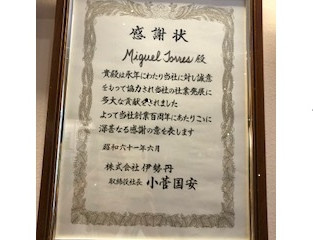 感謝状
Miguel Torres 殿
貴殿は永年にわたり当社に対し誠意
をもって協力され当社の社業発展に
多大な貢献をされました
よって当社創業百周年にあたりここに
深甚なる感謝の意を表します
昭和六十一年六月
株式会社 伊勢丹
取締役社長 小菅国安